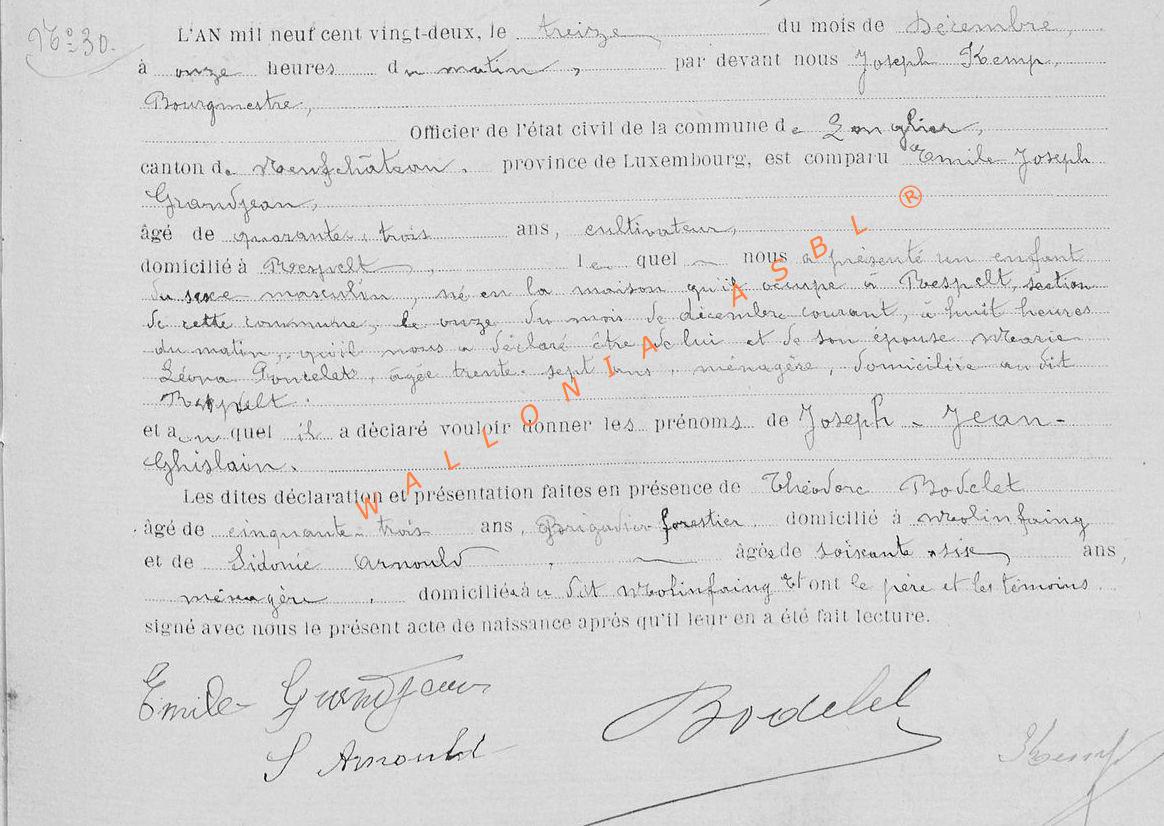 N° 30.
L'AN mil neuf cent vingt-deux, le treize du mois de Décembre,
à onze heures du matin, par devant nous Joseph Kemp,
Bourgmestre,
Officier de l'état civil de la commune de Longlier,
canton de Neufchâteau, province de Luxembourg, est comparu Emile Joseph
Grandjean,
âgé de quarante-trois ans, cultivateur,
domicilié à Respelt, lequel nous a présenté un enfant
du sexe masculin, né en la maison qu'il occupe à Respelt, section
de cette commune, le onze du mois de décembre courant, à huit heures
du matin, qu'il nous a déclaré être de lui et de son épouse Marie
Léona Poncelet, âgée trente-sept ans, ménagère, domiciliée au dit
Respelt.
et auquel il a déclaré vouloir donner les prénoms de Joseph - Jean-
Ghislain.
Les dites déclaration et présentation faites en présence de Théodore Bodelet
âgé de cinquante-trois ans, Brigadier forestier, domicilié à Molinfaing
et de Sidonie Arnould, âgés de soixante-six ans,
ménagère, domiciliés à u dit Molinfaing Et ont le père et les témoins
signé avec nous le présent acte de naissance après qu'il leur en a été fait lecture.
Emile Grandjean
S Arnould
Bodelet
Kemp
WALLONIA ASBL ®